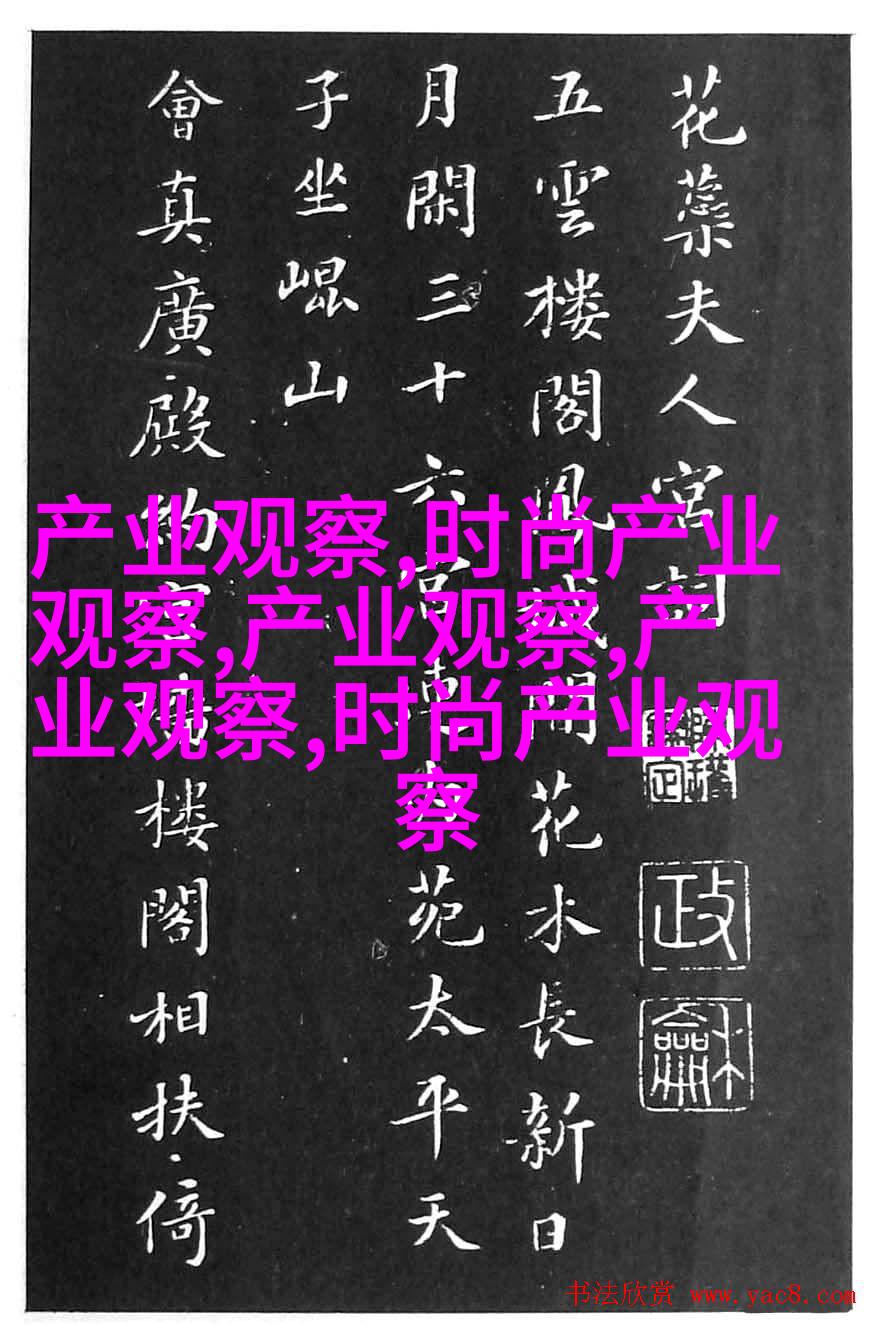 花蘂夫人宮詞
五雲楼閣鳳城間花木長新日
月閑三十六宮連苑太平天
子坐崐山
會真廣殿約宮楼閣相扶倚
政
龢
产业观察,时尚产业
观察,产业观察,产
业观察,时尚产业观
察
书法欣赏 www.yac8.com